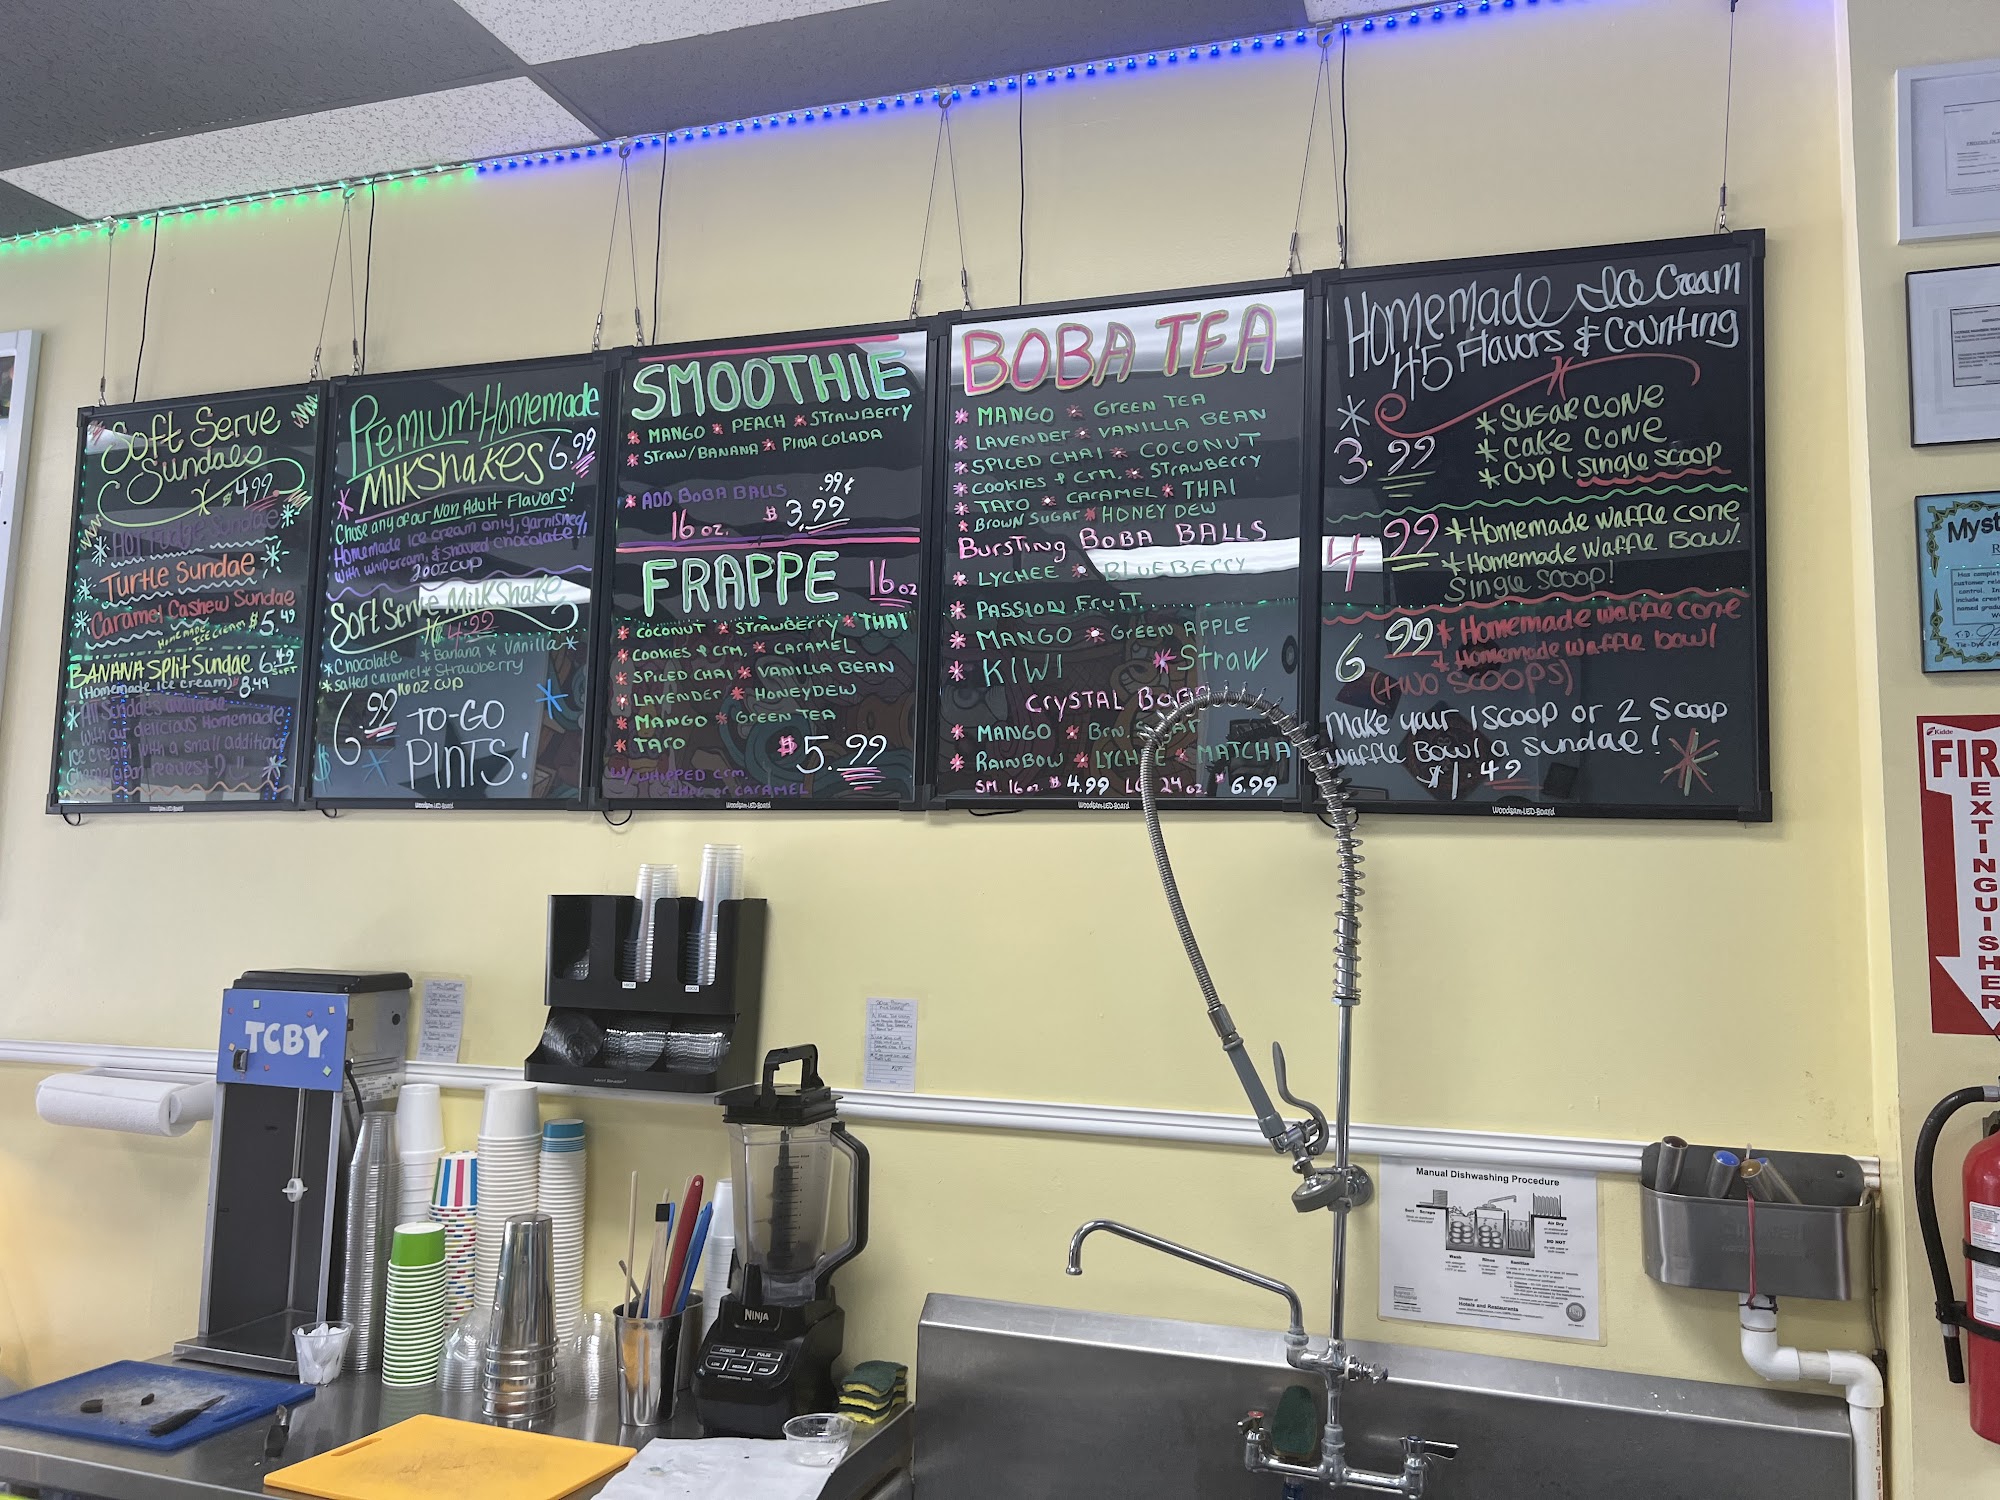 Soft Serve
Sundaes
$4.99
Hot Fudge Sundae
Turtle Sundae
Caramel Cashew Sundae
Homemade Ice cream $5.49
Banana Split Sundae 6.49 soft
(Homemade Ice cream) 8.49
All Sundaes available
with our delicious Homemade
Ice cream with a small additional
charge upon request
Woodsam-LED-Board
Premium-Homemade
Milkshakes 6.99
Chose any of our Non Adult Flavors!
Homemade ice cream only, garnished
with whipcream, & shaved chocolate!!
20oz cup
Soft Serve Milkshake
4.99
Chocolate * Banana * Vanilla
Salted Caramel * Strawberry
16 oz. cup
$6.99 TO-GO
PINTS!
Woodsam-LED-Board
SMOOTHIE
* MANGO * PEACH * STRAWBERRY
* STRAW/BANANA * PINA COLADA
* ADD BOBA BALLS .99¢
16 oz. $3.99
FRAPPE 16oz
* COCONUT * STRAWBERRY * THAI
* COOKIES & CRM. * CARAMEL
* SPICED CHAI * VANILLA BEAN
* LAVENDER * HONEYDEW
* MANGO * GREEN TEA
* TARO $5.99
W/ WHIPPED CRM.
CHOC. or CARAMEL
BOBA TEA
* MANGO * GREEN TEA
* LAVENDER * VANILLA BEAN
* SPICED CHAI * COCONUT
* COOKIES & CRM. * STRAWBERRY
* TARO * CARAMEL * THAI
* BROWN SUGAR * HONEY DEW
Bursting BOBA BALLS
* LYCHEE * BLUEBERRY
* PASSION FRUIT
* MANGO * GREEN APPLE
* KIWI * Straw
CRYSTAL BOBA
* MANGO * Brn. Sugar
* RAINBOW * LYCHEE * MATCHA
SM. 16 oz. $4.99 LG 24 oz. $6.99
Woodsam-LED-Board
Homemade Ice Cream
45 Flavors & Counting
3.99 * Sugar Cone
* Cake Cone
* Cup / Single scoop
4.99 * Homemade Waffle Cone
* Homemade Waffle Bowl
Single scoop!
6.99 * Homemade Waffle Cone
* Homemade Waffle Bowl
(two scoops)
Make your 1 scoop or 2 scoop
waffle bowl a sundae!
$1.49
Woodsam-LED-Board
Myst
Kidde
FIR
EXTINGUISHER
TCBY
NINJA
POWER PULSE
LOW MEDIUM HIGH
Manual Dishwashing Procedure
Sort Scrape
Air Dry
DO NOT
Wash Rinse Sanitize
Division of
Hotels and Restaurants